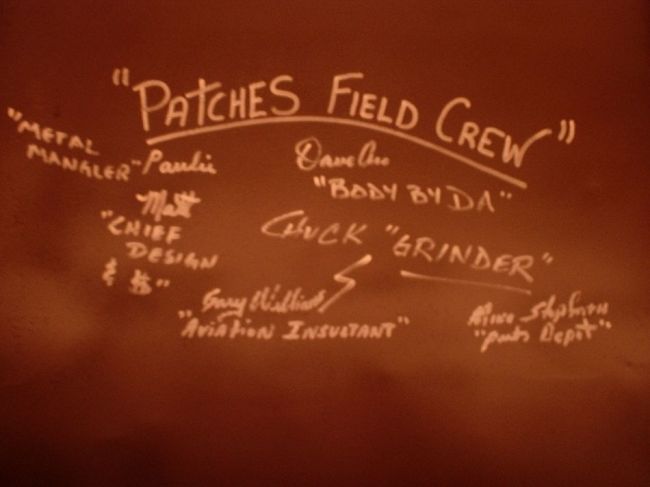 "PATCHES FIELD CREW"
"METAL
MANGLER" Paulie
Dave
"BODY BY DA"
Matt
"CHIEF
DESIGN
& $"
CHUCK "GRINDER"
Gary Williams
"AVIATION INSULTANT"
"Parts Depot"